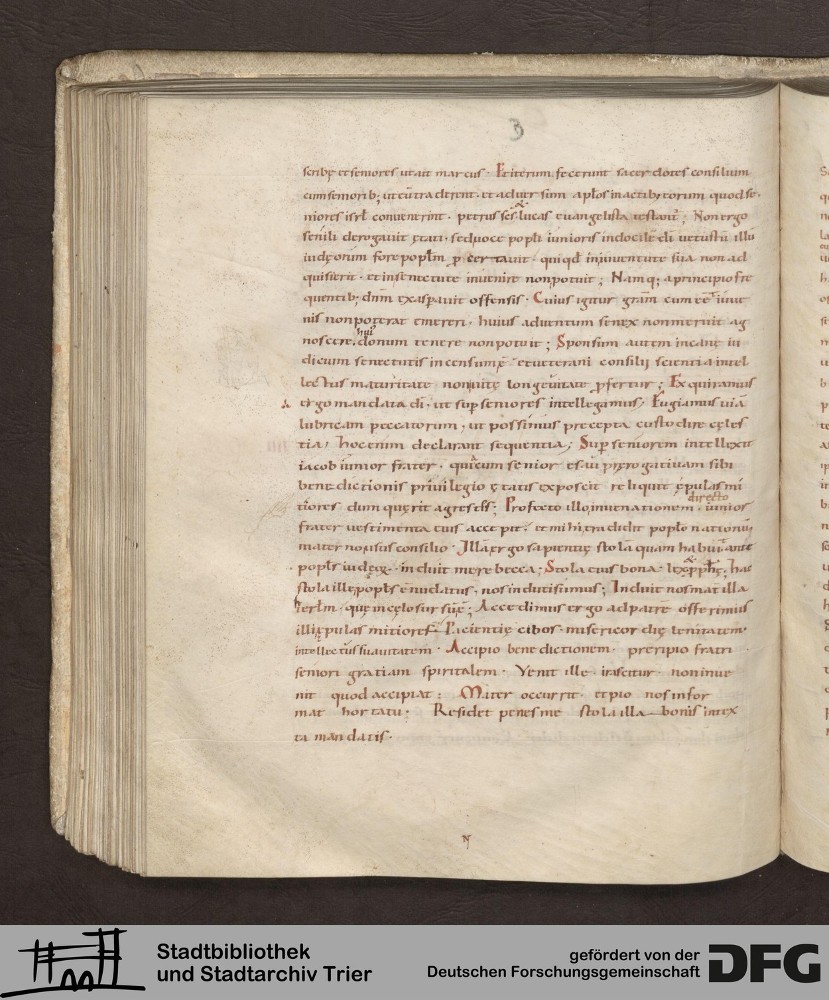 3
scribę et seniores ut ait marcus · Et iterum fecerunt sacerdotes consilium
cum seniorib; ut eū traderent · et aduersum aplos in actib; eorum quod se
niores isrl conuenerint · petrus ses lucas euangelista testant̄; Non ergo
senili derogauit ętati · sed uoce popli iunioris indocilē di uetustū illū
iudęorum fore poplm p
quisierit · et in senectute inuenire non potuit; Namq; a principio fre
quentib; dnm exaspauit offensis · Cuius igitur gram cum eēt iuue
nis non poterat emereri, huius aduentum senex non meruit ag
noscere, donum tenere non potuit; Sponsum autem incanę iu
dicium senectutis in censum ē et ueterani consilii scientia intel
lectus maturitate non uitę longeuitate pfertur; Exquiramus
ergo mandata di · ut sup seniores intellegamus, Fugiamus uiā
lubricam peccatorum, ut possimus precepta custodire cęles
tia, hoc enim declarant sequentia; Sup seniorem intellexit
iacob iunior frater · qui cum senior esau prerogatiuam sibi
benedictionis priuilegio ętatis exposcit reliquit epulas mi
directo
tiores dum quęrit agrestes; Profecto illo, in uenationem iunior
frater uestimenta eius accepit · et mihi, tradidit poplo nationū
mater non usus consilio · Illa ergo sapientię stola quam habuit ante
popls iudęis · induit me rebecca; Stola eius bona · lex, pphę, hac
stola ille popls ē nudatus, nos induti sumus; Induit nos mat̄ illa
hierlm · quę in cęlo sursū ē; Accedimus ergo ad patrē offerimus
illi epulas mitiores Pacientię cibos · misericordię lenitatem
intellectus suauitatem · Accipio benedictionem · preripio fratri
seniori gratiam spiritalem · Venit ille · irascitur · non inue
nit quod accipiat: Mater occurrit · et pio nos infor
mat hortatu · Residet penes me stola illa bonis intex
ta mandatis ·
N
Stadtbibliothek
und Stadtarchiv Trier
gefördert von der
Deutschen Forschungsgemeinschaft
DFG